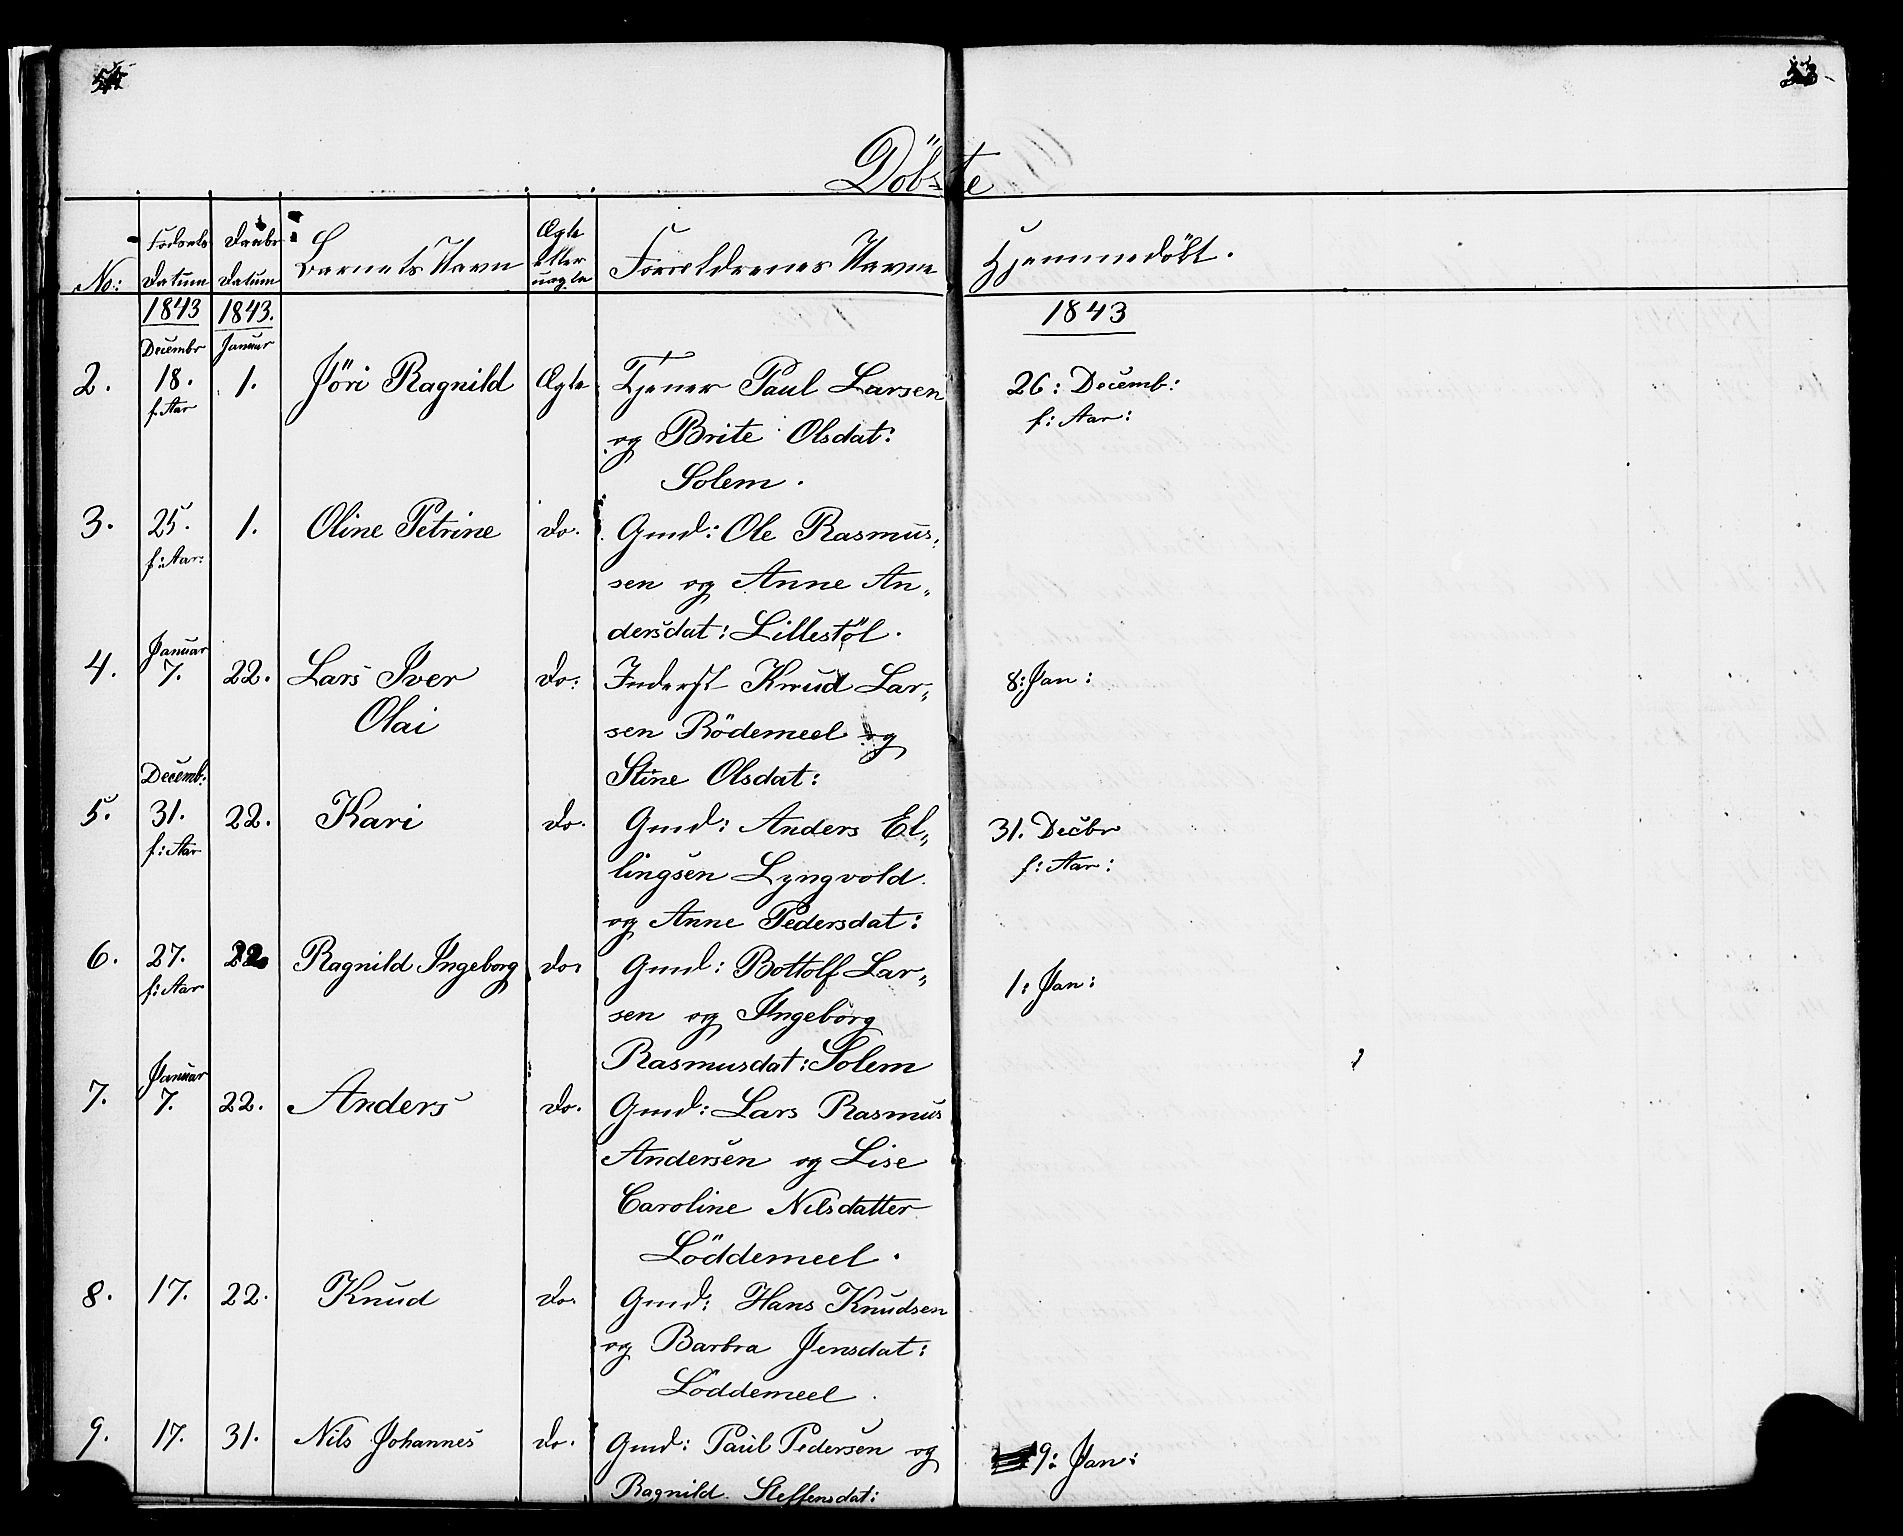 Döbte
No: Fødsels Datum Daabs Datum Barnets Navn Ægte eller uægte Forældrenes Navne Hjemmedöbt.
1843 1843. 1843
Decembr Januar
2. 18. 1. Jöri Ragnild Ægte Tjener Paul Larsen 26: Decemb:
f. Aar og Brite Olsdat: f: Aar:
Solem.
3. 25. 1. Oline Petrine do. Gmd: Ole Rasmus„
f: Aar: sen og Anne An„
dersdat: Lillestöl.
Januar
4. 7. 22. Lars Iver do: Inderst Knud Lar„ 8: Jan:
Olai sen Rödemeel og
Decemb. Stine Olsdat:
5. 31. 22. Kari do. Gmd: Anders El„ 31. Decbr
f: Aar lingsen Lyngvold f: Aar:
og Anne Pedersdat:
6. 27. 22. Ragnild Ingeborg do. Gmd: Bottolf Lar„ 1: Jan:
f: Aar sen og Ingeborg
Rasmusdat: Solem
Januar
7. 7. 22. Anders do. Gmd: Lars Rasmus
Andersen og Lise
Caroline Nilsdatter
Löddemeel.
8. 17. 22. Knud do. Gmd: Hans Knudsen
og Barbra Jensdat:
Löddemeel.
9. 17. 31. Nils Johannes do. Gmd: Paul Pedersen og 9: Jan:
Ragnild Steffensdat: